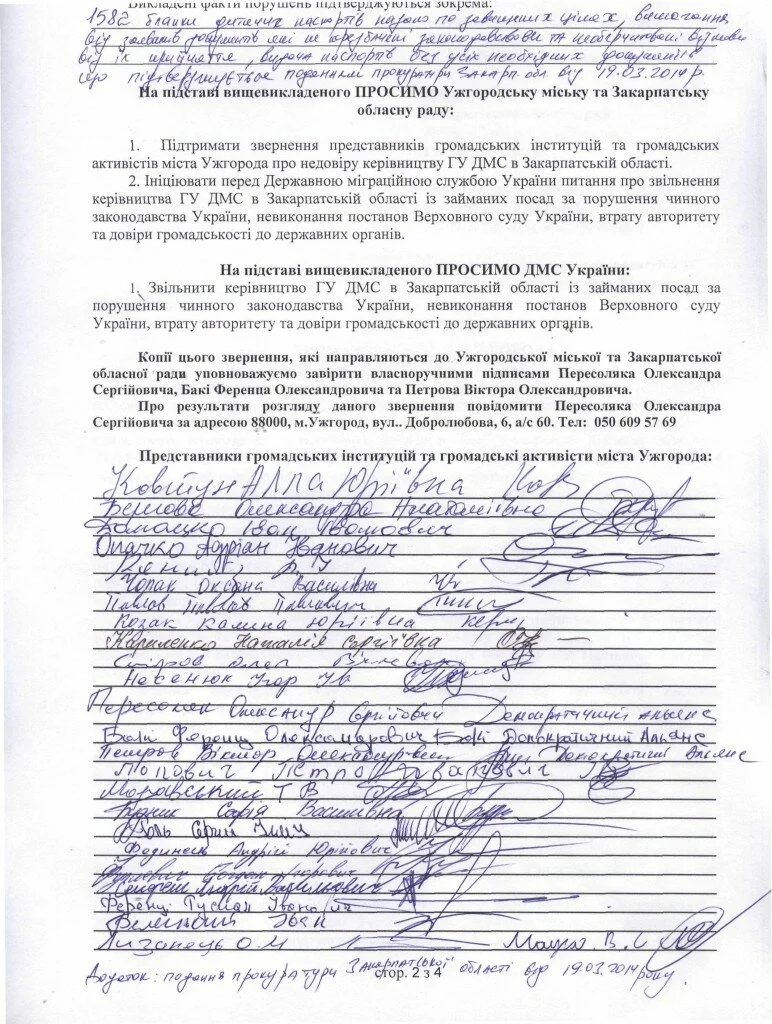 Викладені факти порушень підтверджуються зокрема:
1582 бланки паспортів по цілях, вимагання
від заявників документів які не передбачені законодавством та необґрунтовані відмови
від їх прийняття, видача паспортів без усіх необхідних документів
що підтверджується поданням прокуратури Закарп. обл. від 19.03.2014р.
На підставі вищевикладеного ПРОСИМО Ужгородську міську та Закарпатську
обласну раду:
1. Підтримати звернення представників громадських інституцій та громадських
активістів міста Ужгорода про недовіру керівництву ГУ ДМС в Закарпатській області.
2. Ініціювати перед Державною міграційною службою України питання про звільнення
керівництва ГУ ДМС в Закарпатській області із займаних посад за порушення чинного
законодавства України, невиконання постанов Верховного суду України, втрату авторитету
та довіри громадськості до державних органів.
На підставі вищевикладеного ПРОСИМО ДМС України:
1. Звільнити керівництво ГУ ДМС в Закарпатській області із займаних посад за
порушення чинного законодавства України, невиконання постанов Верховного суду
України, втрату авторитету та довіри громадськості до державних органів.
Копії цього звернення, які направляються до Ужгородської міської та Закарпатської
обласної ради уповноважуємо завірити власноручними підписами Пересоляка Олександра
Сергійовича, Бакі Ференца Олександровича та Петрова Віктора Олександровича.
Про результати розгляду даного звернення повідомити Пересоляка Олександра
Сергійовича за адресою 88000, м.Ужгород, вул.. Добролюбова, 6, а/с 60. Тел: 050 609 57 69
Представники громадських інституцій та громадські активісти міста Ужгорода:
Ковтун Алла Юріївна
Олександра Анатоліївна
Іван Іванович
Опачко Адріан Іванович
Чопак Оксана Василівна
Павлов Павлович
Козак Калина Юріївна
Кириленко Наталія Сергіївна
Олег
Носенюк Ігор
Пересоляк Олександр Сергійович Демократичний альянс
Бакі Ференц Олександрович Бакі Демократичний Альянс
Петров Віктор Олександрович Демократичний Альянс
Попович Петро Іванович
Моравський Т В
Софія Василівна
Сергій
Фединець Андрій Юрійович
Богдан
Андрій Васильович
Ференц Руслан Іванович
Іван
Лизанець О.М Мацко В.
Додаток: подання прокуратури Закарпатської області від 19.03.2014 року.
стор. 2 з 4